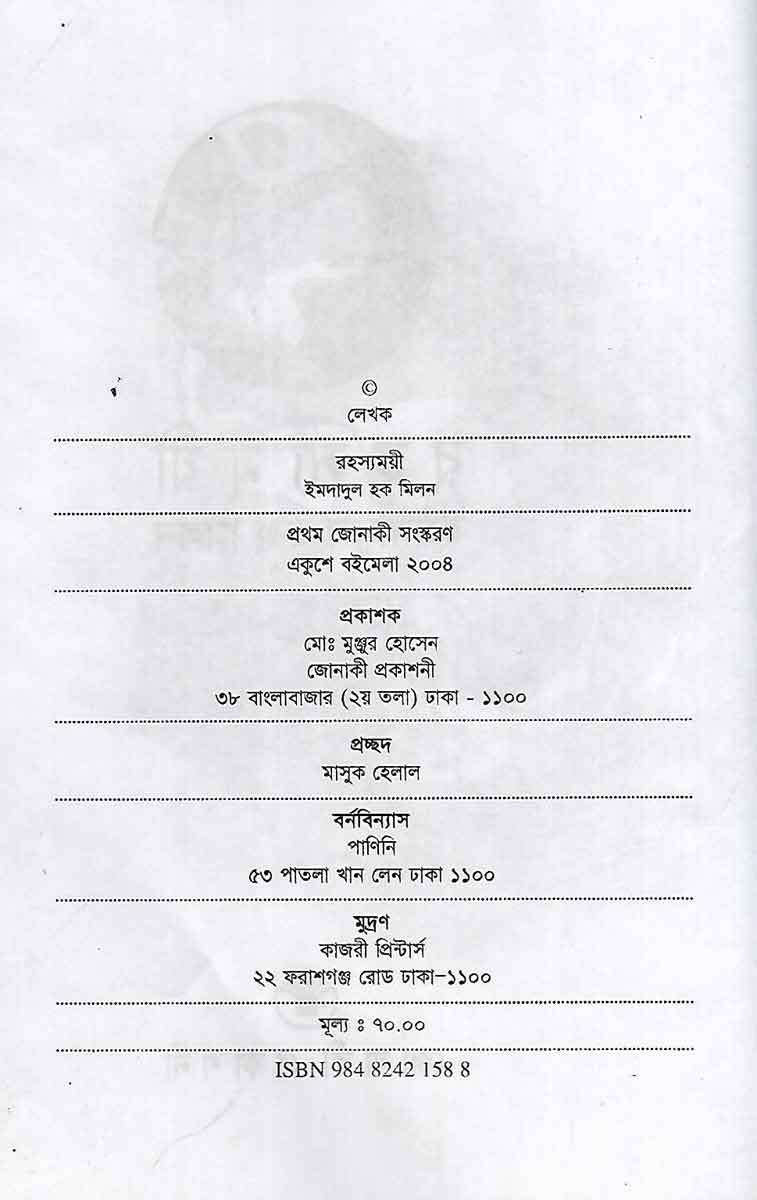 ©
লেখক
রহস্যময়ী
ইমদাদুল হক মিলন
প্রথম জোনাকী সংস্করণ
একুশে বইমেলা ২০০৪
প্রকাশক
মোঃ মুঞ্জুর হোসেন
জোনাকী প্রকাশনী
৩৮ বাংলাবাজার (২য় তলা) ঢাকা - ১১০০
প্রচ্ছদ
মাসুক হেলাল
বর্নবিন্যাস
পাণিনি
৫৩ পাতলা খান লেন ঢাকা ১১০০
মুদ্রণ
কাজরী প্রিন্টার্স
২২ ফরাশগঞ্জ রোড ঢাকা–১১০০
মূল্য ঃ ৭০.০০
ISBN 984 8242 158 8